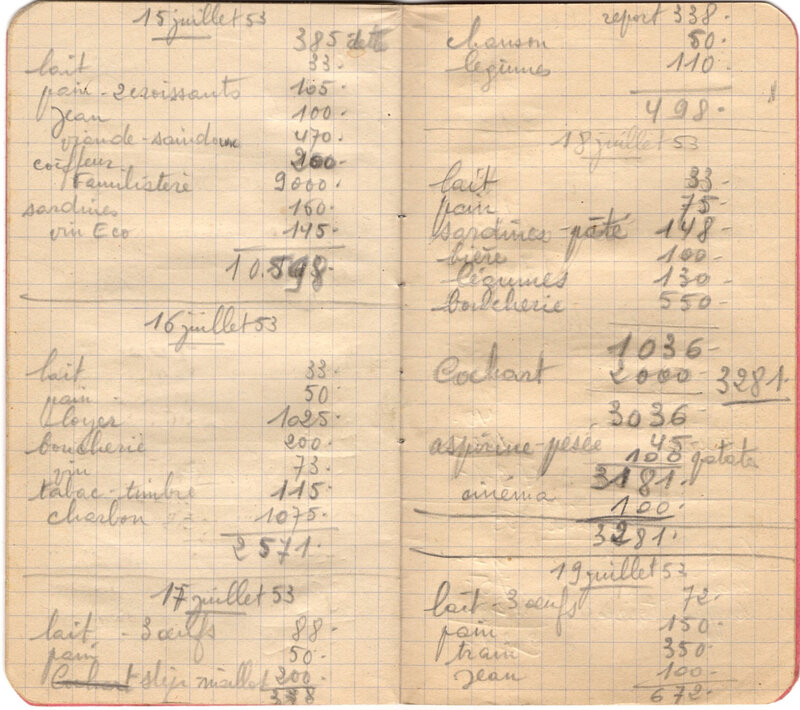 15 juillet 53
385 dette
lait 33.
pain - 2 croissants 105
jean 100.
viande - saindoux 470.
coiffeur 200.
Familistere 9000.
sardines 160.
vin Eco 145.
10.598.
16 juillet 53
lait 33.
pain 50
loyer 1025.
boucherie 200.
vin 73.
tabac - timbre 115.
charbon 1075.
2571.
17 juillet 53
lait - 3 œufs 88.
pain 50.
Cochart slip maillot 200.
338
report 338.
chanson 50.
légumes 110.
498.
18 juillet 53
lait 33.
pain 75.
sardines - pâté 148.
bière 100.
légumes 130.
boucherie 550.
1036
Cochart 2000 3281.
3036
aspirine - pesée 45
100 patate
3181.
cinéma 100.
3281.
19 juillet 53
lait - 3 œufs 72.
pain 150.
train 350.
jean 100.
672.